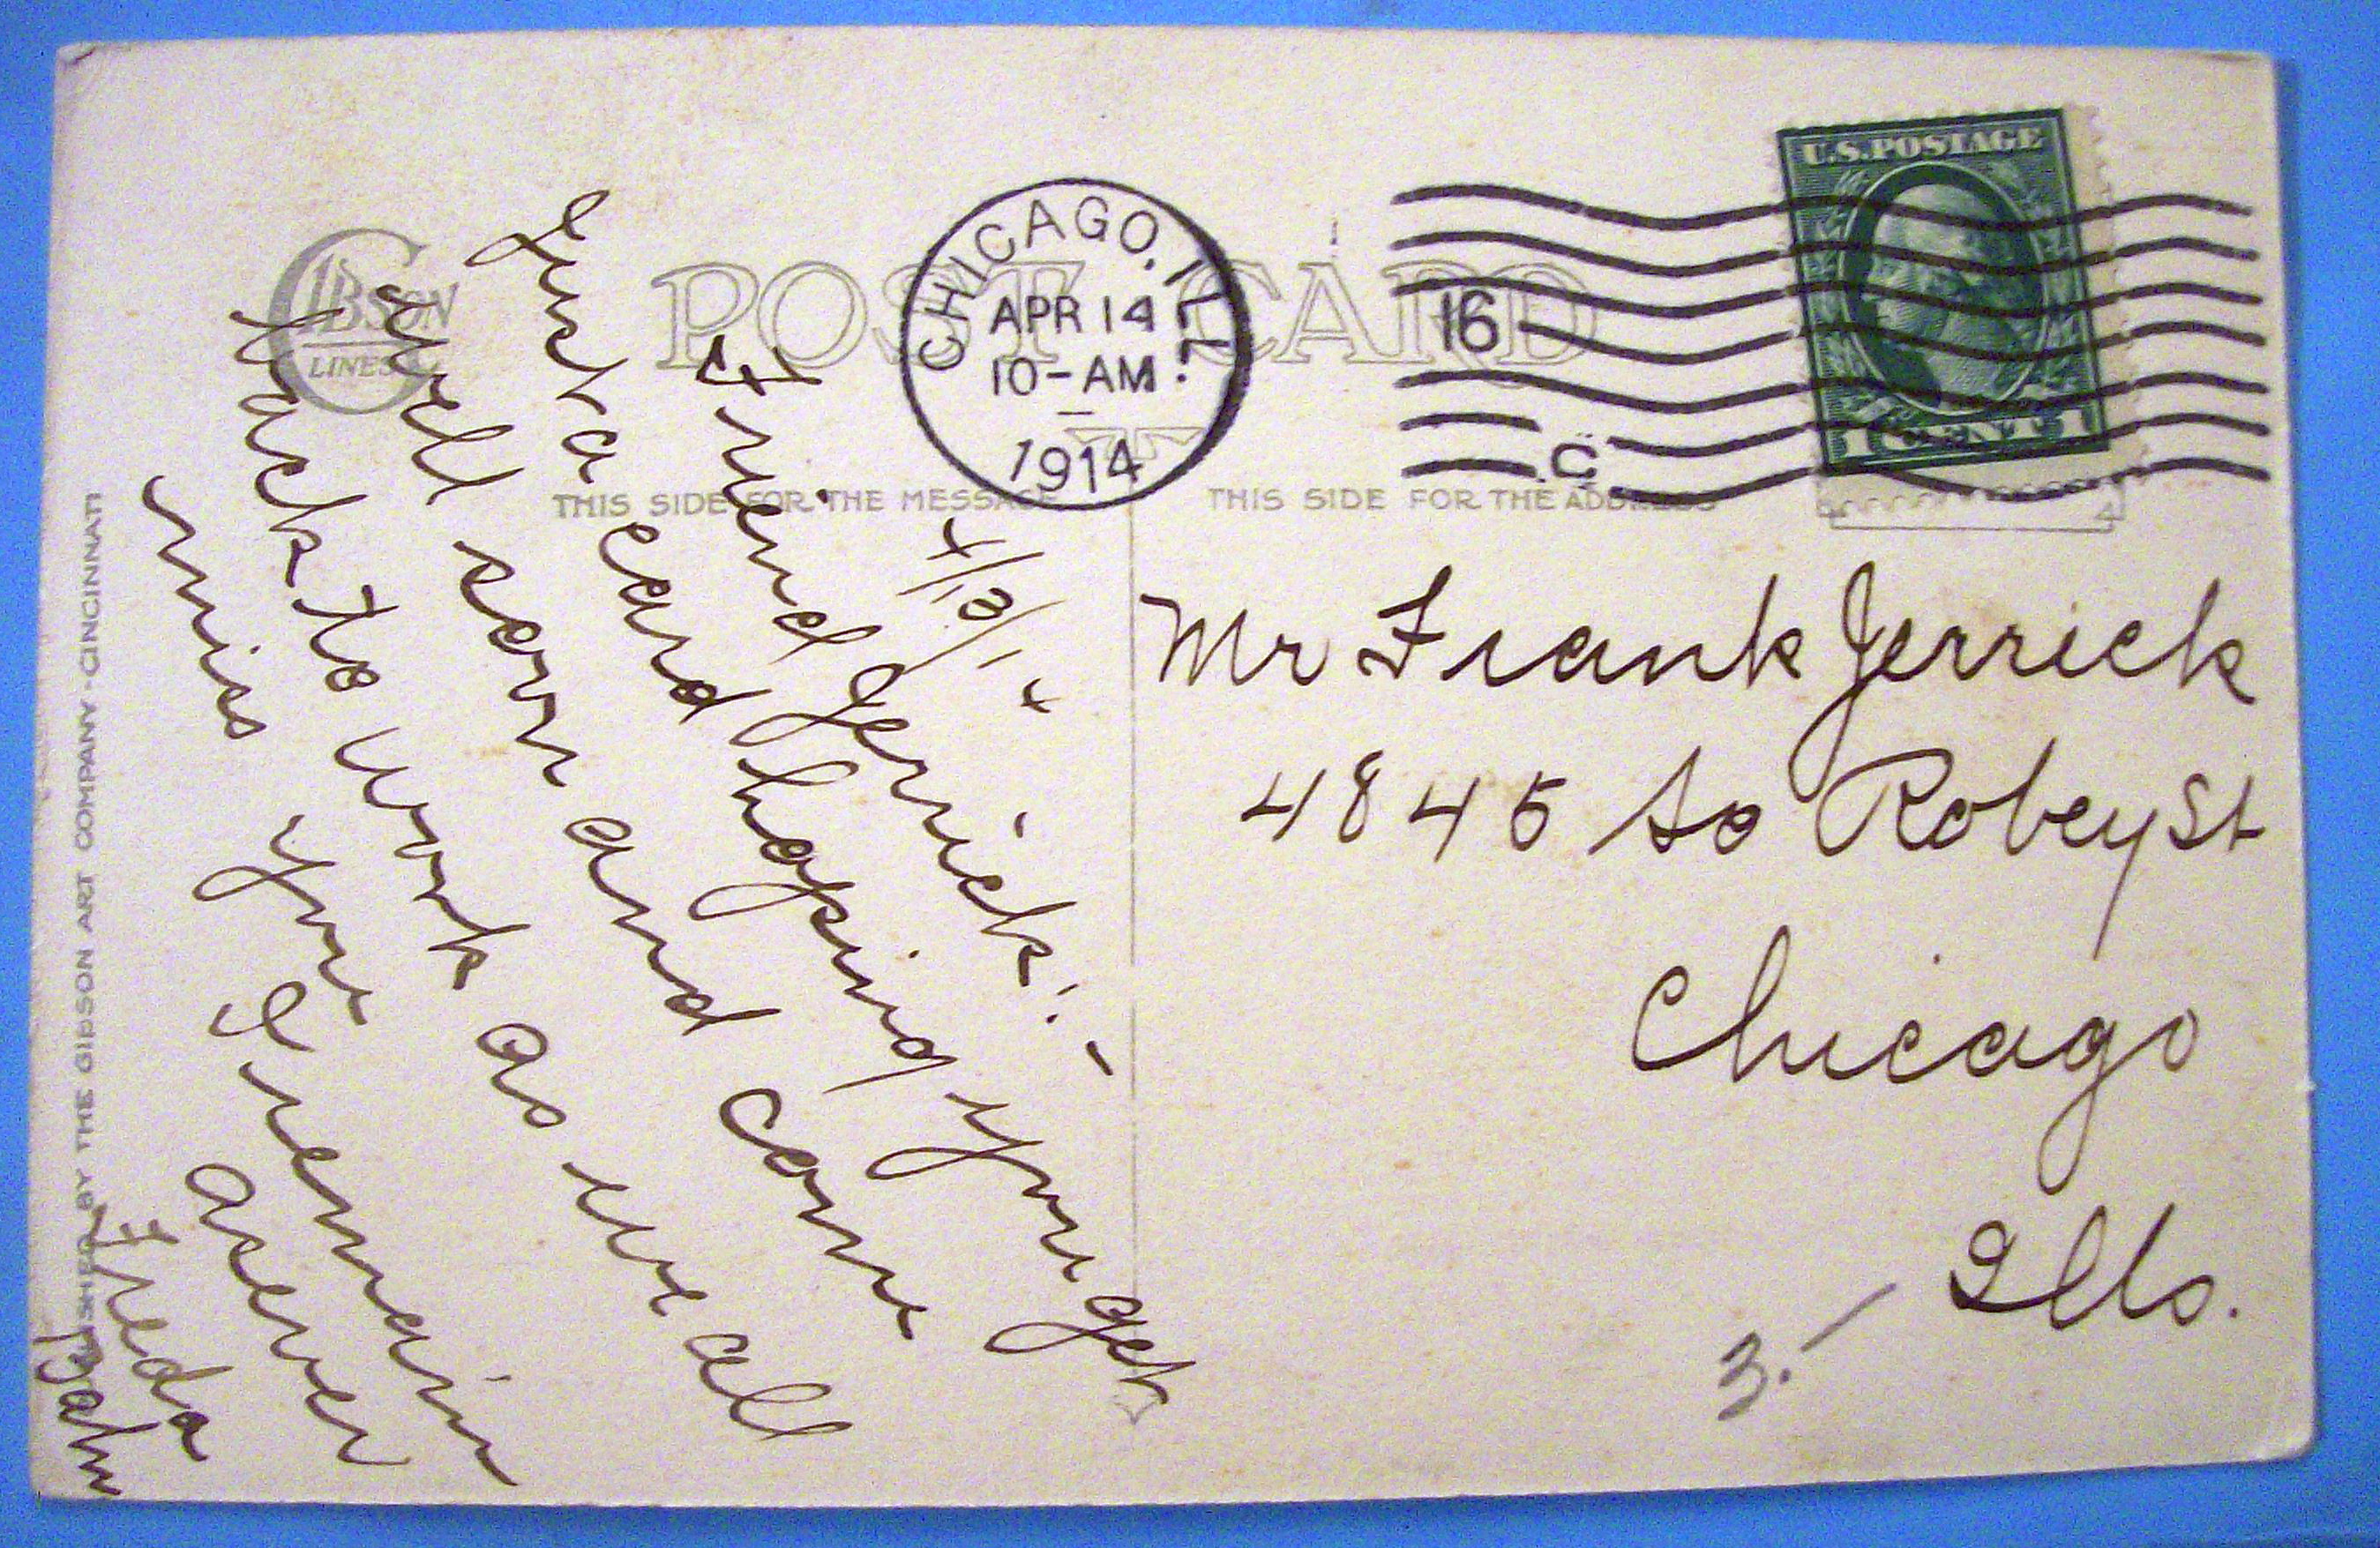 GIBSON
LINES
POST CARD
CHICAGO, ILL.
APR 14
10-AM
1914
16
C
U.S. POSTAGE
1 CENT 1
THIS SIDE FOR THE MESSAGE
THIS SIDE FOR THE ADDRESS
4/13/14
Friend Jerrick:-
Just a card hoping you get
well soon and come
back to work as we all
miss you I remain
as ever
Freda
Bahn
Mr Frank Jerrick
4845 So Robey St
Chicago
Ills.
3.-
PUBLISHED BY THE GIBSON ART COMPANY-CINCINNATI